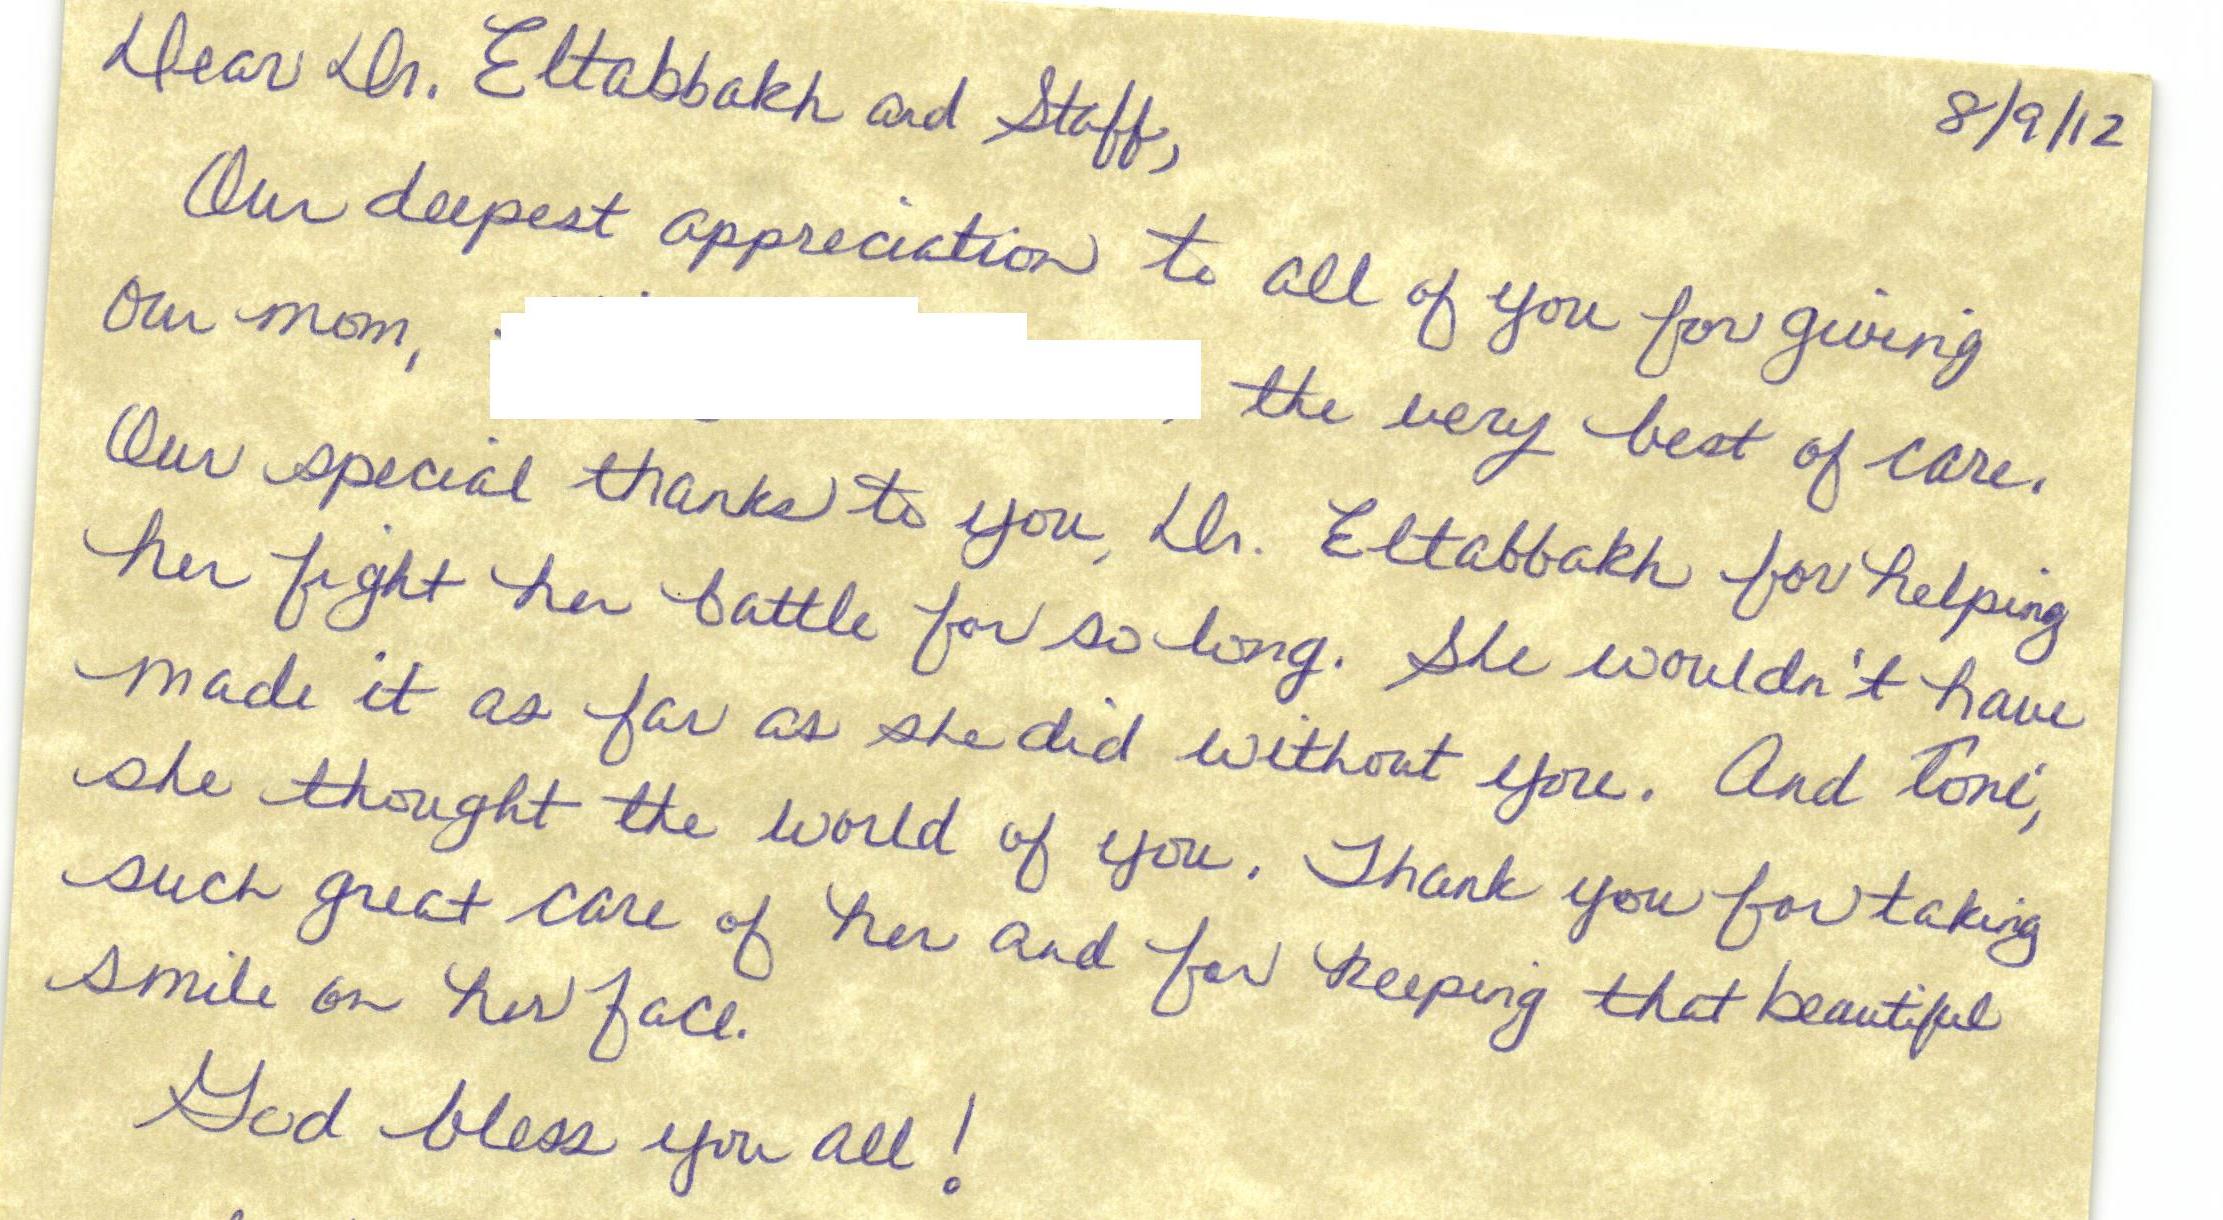 8/9/12
Dear Dr. Eltabbakh and Staff,
Our deepest appreciation to all of you for giving
our mom, , the very best of care.
Our special thanks to you, Dr. Eltabbakh for helping
her fight her battle for so long. She wouldn't have
made it as far as she did without you. And Toni,
she thought the world of you. Thank you for taking
such great care of her and for keeping that beautiful
smile on her face.
God bless you all!